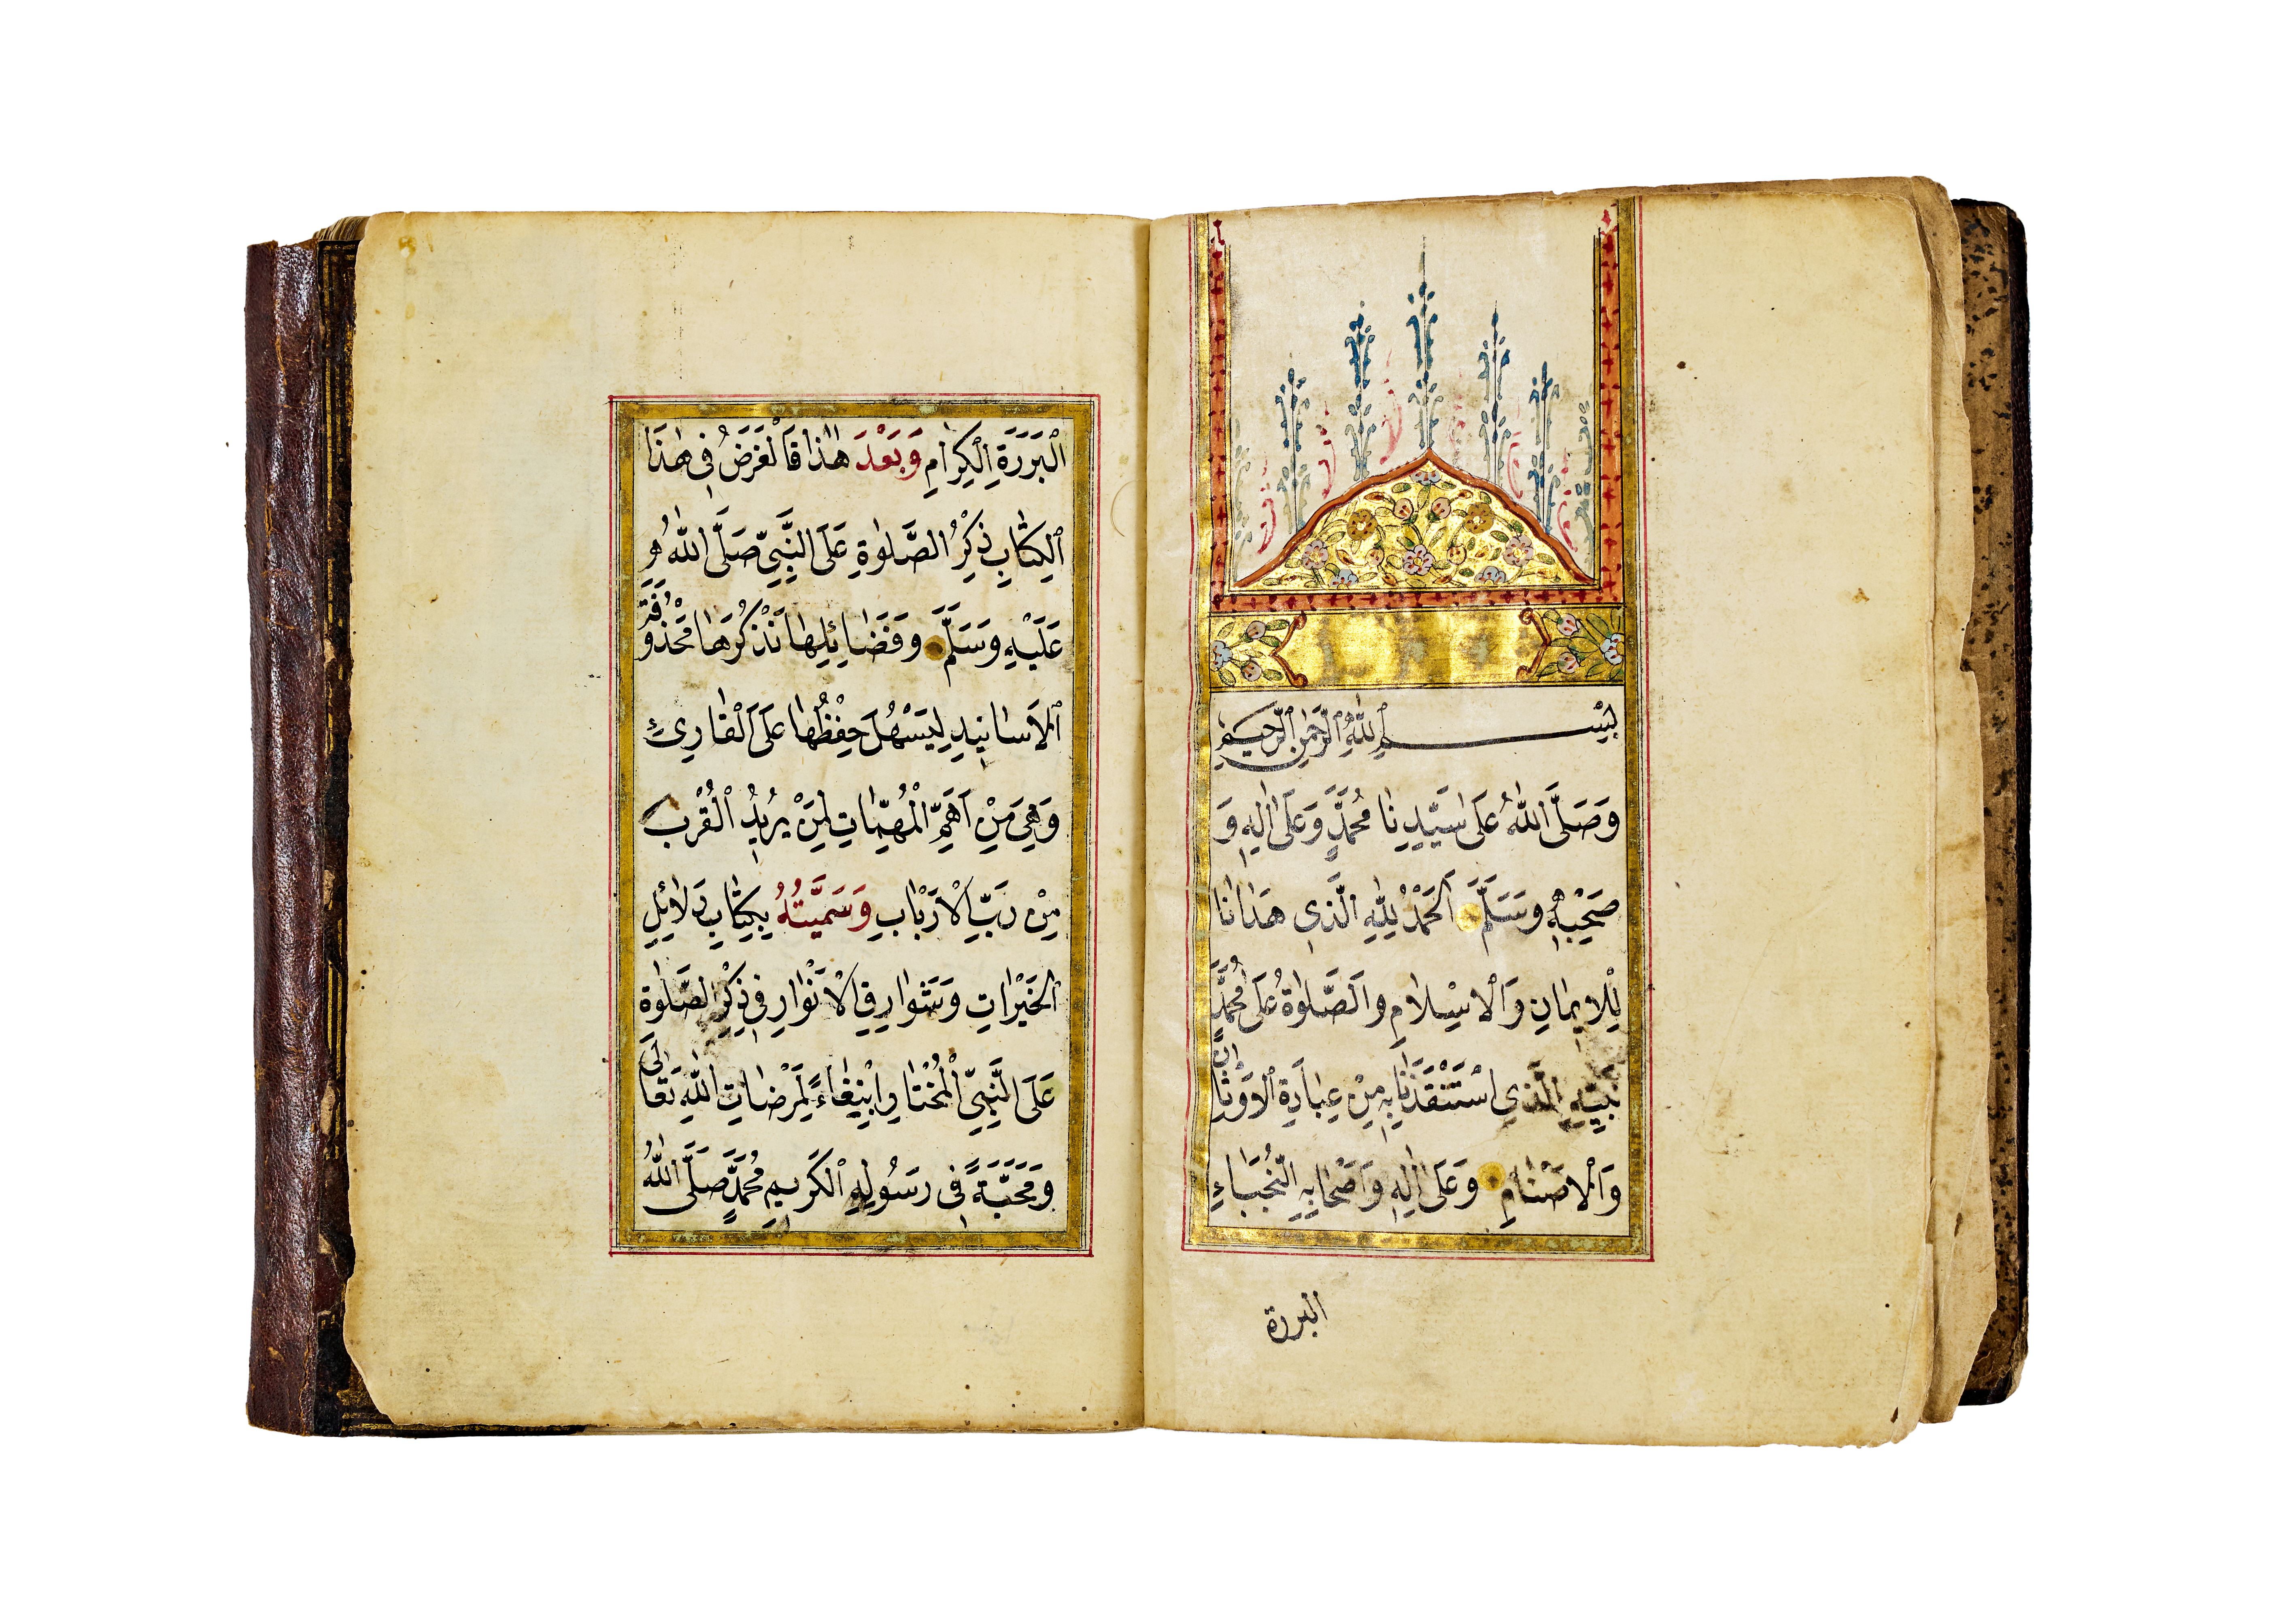 بِسْمِ ٱللهِ ٱلرَّحْمٰنِ ٱلرَّحِيمِ
وَصَلَّى اللهُ عَلَى سَيِّدِنَا مُحَمَّدٍ وَعَلَى اٰلِهِ وَ
صَحْبِهِ وَسَلَّمَ اَلْحَمْدُ لِلّٰهِ الَّذِي هَدَانَا
لِلْاِيمَانِ وَالْاِسْلَامِ وَالصَّلٰوةُ عَلَى مُحَمَّدٍ
نَبِيِّهِ الَّذِي اسْتَنْقَذَنَا بِهِ مِنْ عِبَادَةِ الْاَوْثَانِ
وَالْاَصْنَامِ وَعَلَى اٰلِهِ وَاَصْحَابِهِ النُّجَبَاءِ
البررة
اَلْبَرَرَةِ الْكِرَامِ وَبَعْدَ هٰذَا فَالْغَرَضُ فِي هٰذَا
الْكِتَابِ ذِكْرُ الصَّلٰوةِ عَلَى النَّبِيِّ صَلَّى اللهُ
عَلَيْهِ وَسَلَّمَ وَفَضَائِلِهَا نَذْكُرُهَا مَحْذُوفَةَ
الْاَسَانِيدِ لِيَسْهُلَ حِفْظُهَا عَلَى الْقَارِئِ
وَهِيَ مِنْ اَهَمِّ الْمُهِمَّاتِ لِمَنْ يُرِيدُ الْقُرْبَ
مِنْ رَبِّ الْاَرْبَابِ وَسَمَّيْتُهُ بِكِتَابِ دَلَائِلِ
الْخَيْرَاتِ وَشَوَارِقِ الْاَنْوَارِ فِي ذِكْرِ الصَّلٰوةِ
عَلَى النَّبِيِّ الْمُخْتَارِ ابْتِغَاءً لِمَرْضَاتِ اللهِ تَعَالَى
وَمَحَبَّةً فِي رَسُولِهِ الْكَرِيمِ مُحَمَّدٍ صَلَّى اللهُ